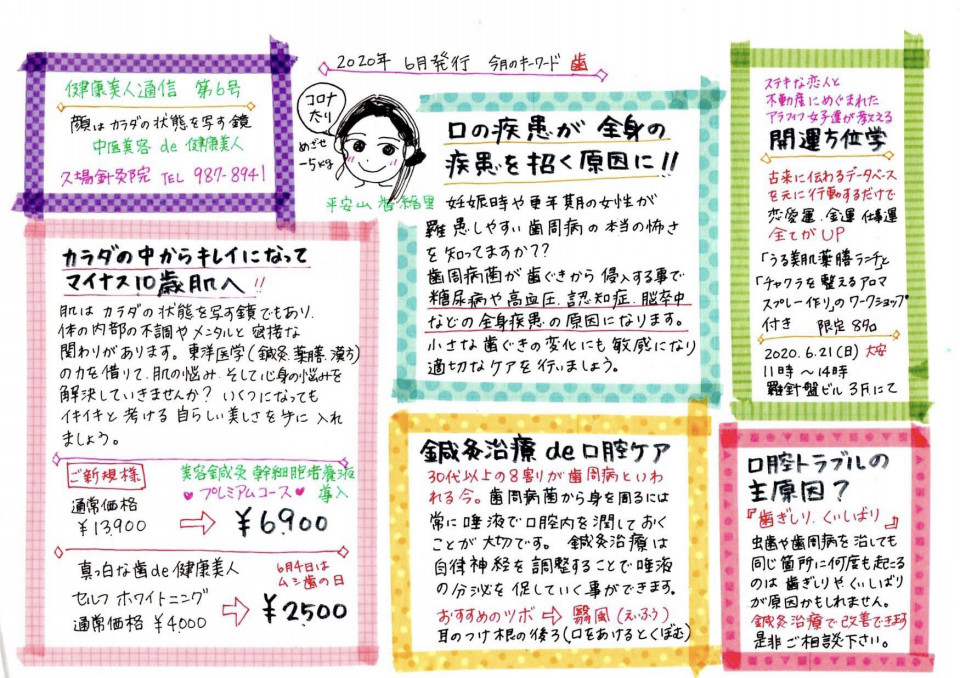 2020年 6月発行 今月のキーワード 歯
健康美人通信 第6号
顔はカラダの状態を写す鏡
中医美容 de 健康美人
久場針灸院 TEL 987-8941
コロナ
太り
めざせ
-5とな
平安山
カラダの中からキレイになって
マイナス10歳肌へ!!
肌はカラダの状態を写す鏡でもあり、
体の内部の不調やメンタルと密接な
関わりがあります。東洋医学(鍼灸.薬膳.漢方)
の力を借りて.肌の悩み.そして心身の悩みを
解決していきませんか? いくつになっても
イキイキと考ける自らしい美しさを手に入れ
ましょう。
ご新規様
美容鍼灸 幹細胞培養液
プレミアムコース 導入
通常価格
¥13900 ⇒ ¥6900
真っ白な歯de健康美人
6月4日は
ムシ歯の日
セルフ ホワイトニング
通常価格 ¥4,000 ⇒ ¥2,500
口の疾患が全身の
疾患を招く原因に!!
妊娠時や更年期の女性が
羅患しやすい歯周病の本当の怖さ
を知ってますか??
歯周病菌が歯ぐきから侵入する事で
糖尿病や高血圧.認知症.脳卒中
などの全身疾患の原因になります。
小さな歯ぐきの変化にも敏感になり
適切なケアを行いましょう。
鍼灸治療de口腔ケア
30代以上の8割りが歯周病といわ
れる今。歯周病菌から身を周るには
常に唾液で口腔内を潤しておく
ことが大切です。 鍼灸治療は
自律神経を調整することで唾液
の分泌を促していく事ができます。
おすすめのツボ ⇒ 翳風(えいふう)
耳のつけ根の後ろ(口をあけるとくぼむ)
ステキな恋人と
不動産にめぐまれた
アラフィフ女子達が教える
開運方位学
古来に伝わるデータベース
を元に行動するだけで
恋愛運.金運.仕事運
全てがUP
「うる美肌薬膳ランチ」と
「チャクラを整えるアロマ
スプレー作り」のワークショップ
付き 限定8名
2020.6.21(日) 大安
11時〜14時
羅針盤ビル 3Fにて
口腔トラブルの
主原因?
『歯ぎしり.くいしばり』
虫歯や歯周病を治しても
同じ箇所に何度も起こる
のは歯ぎしりやくいしばり
が原因かもしれません。
鍼灸治療で改善できます
是非ご相談下さい。